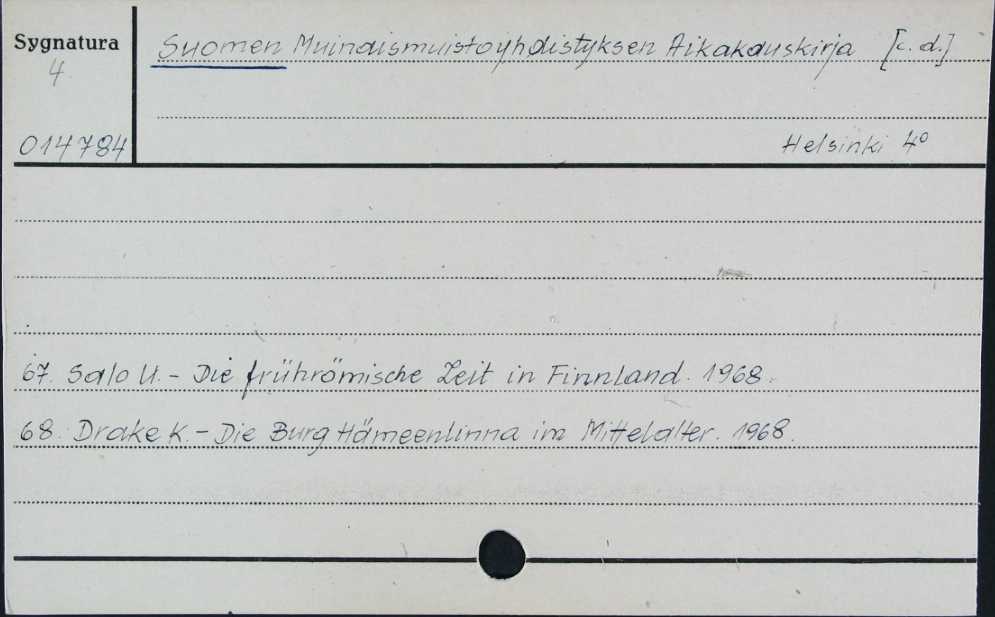 Sygnatura
Suomen Muinaismuistoyhdistyksen Aikakauskirja [c. d.]
4
014784
Helsinki 4°
67. Salo U. - Die frührömische Zeit in Finnland. 1968.
68. Drake K. - Die Burg Hämeenlinna im Mittelalter. 1968.